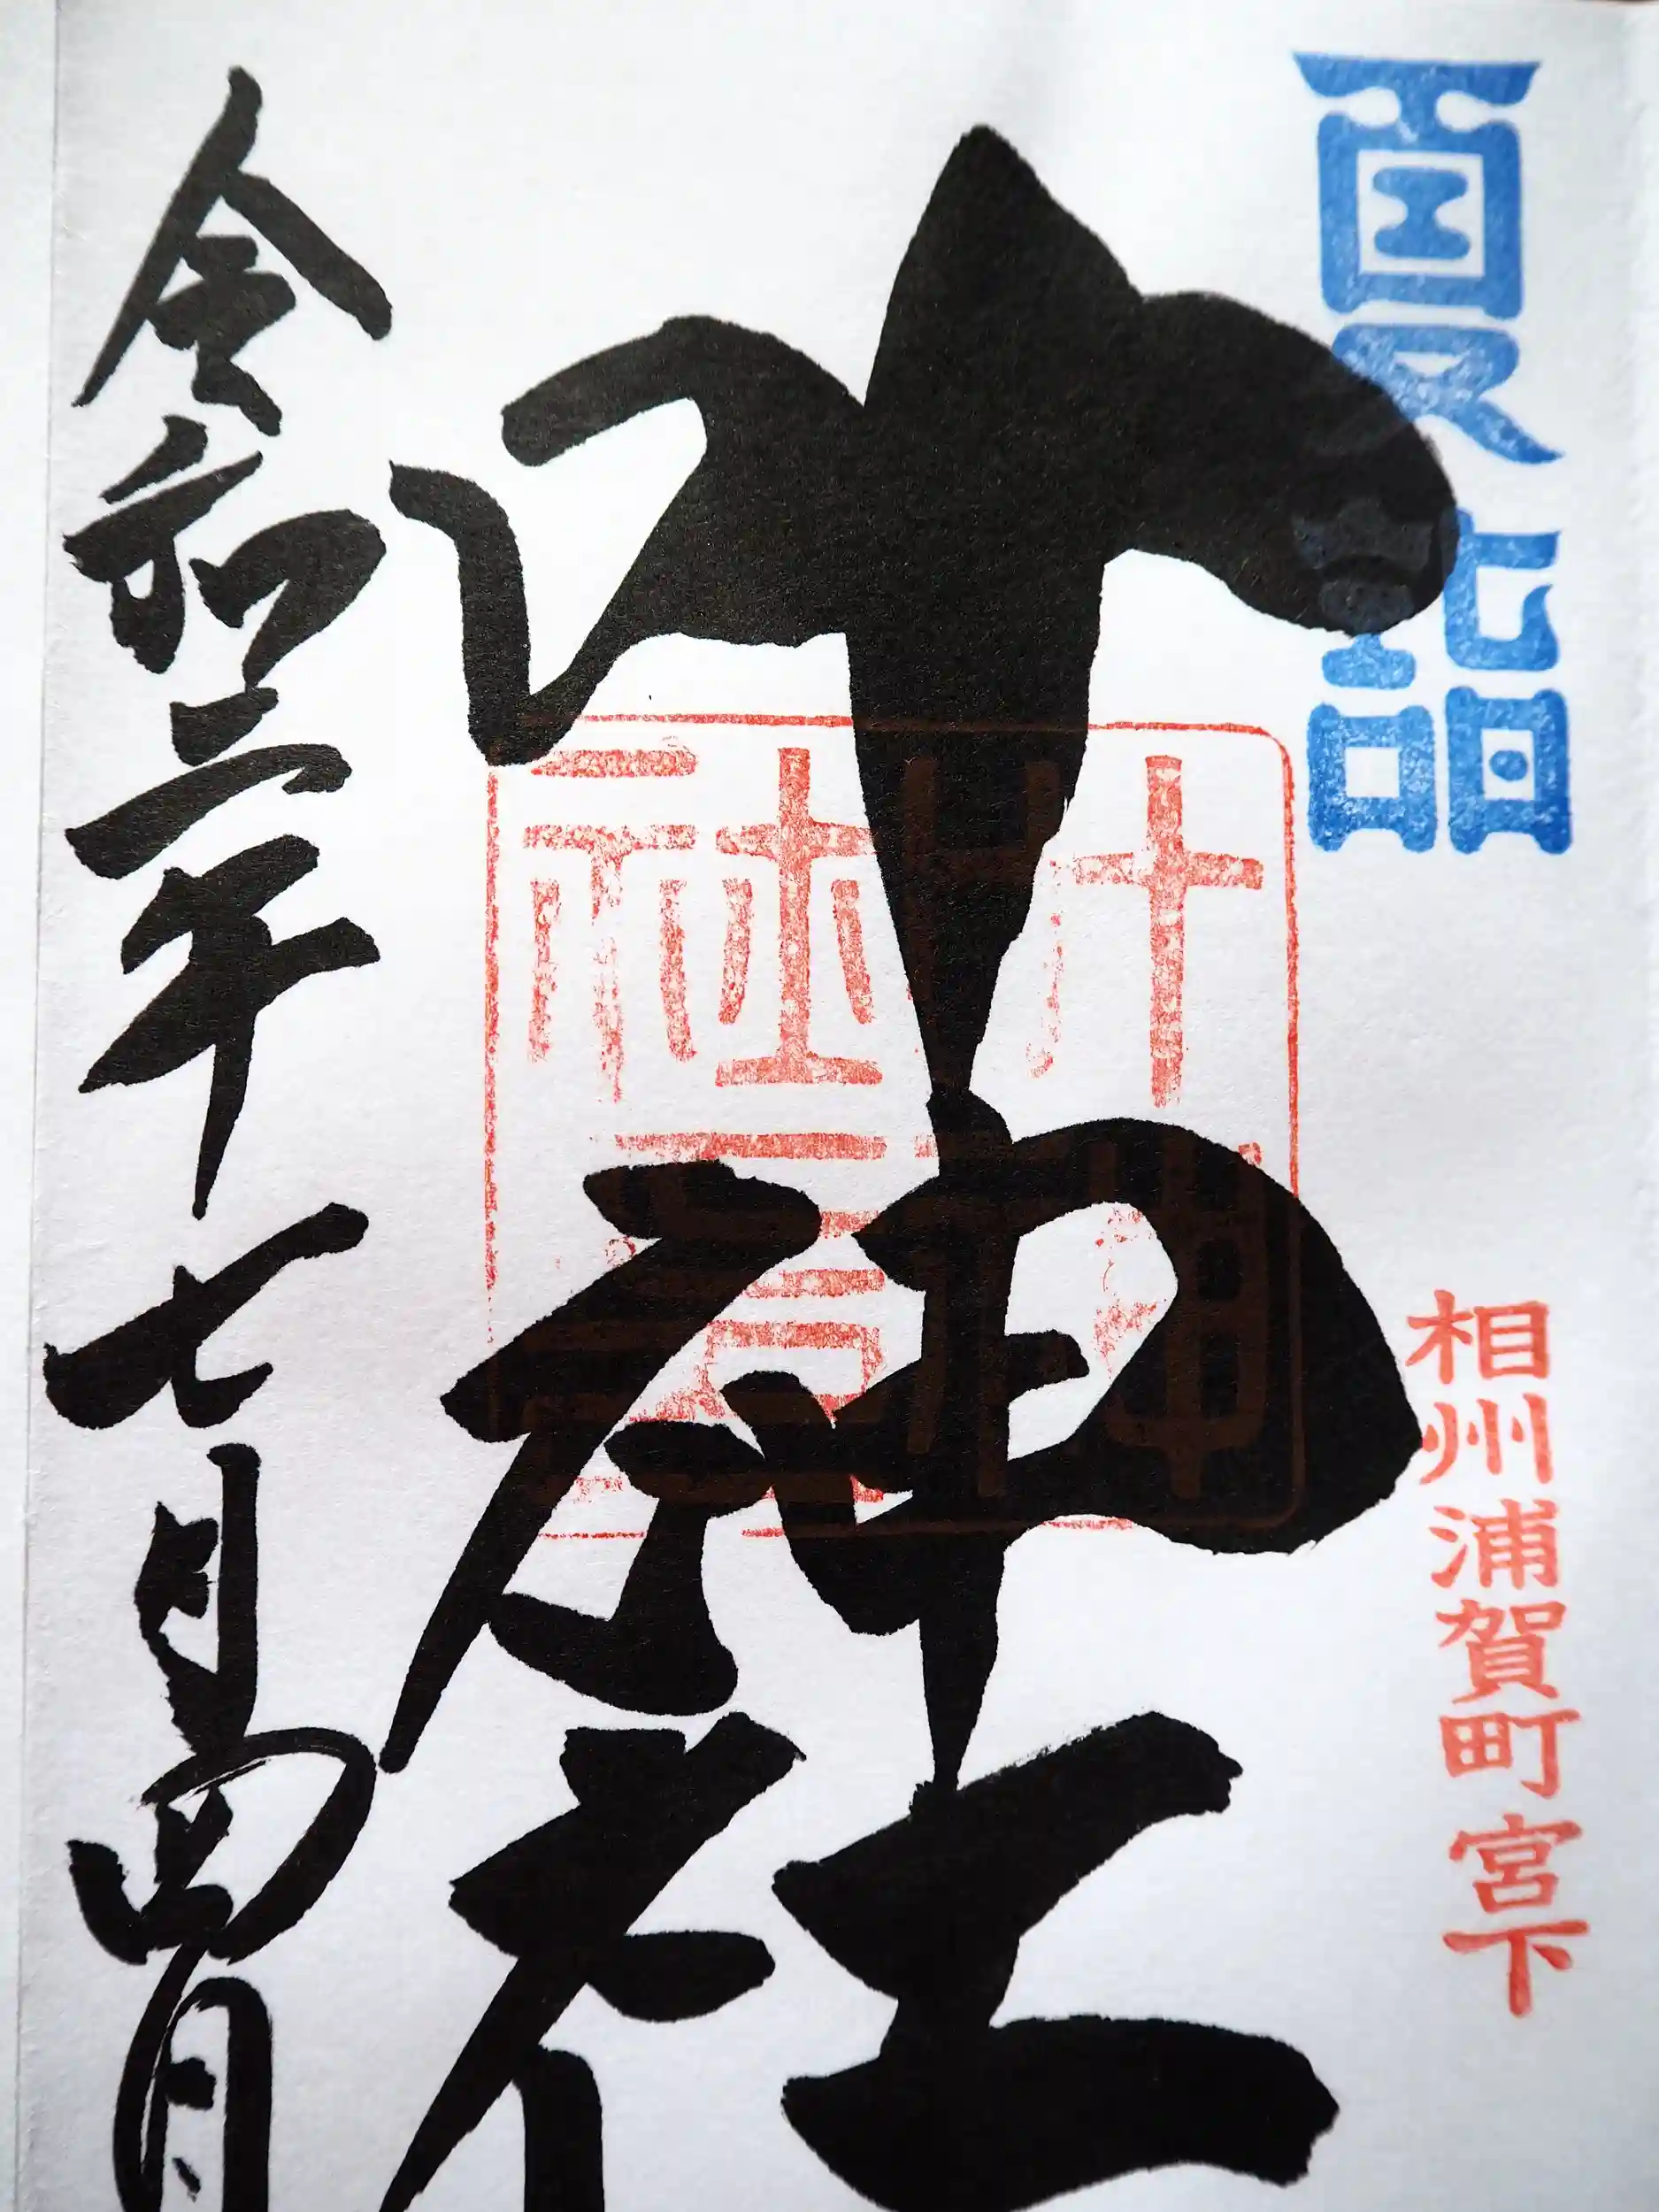 夏詣
相州浦賀町宮下
叶神社
叶神社
令和二年七月四日